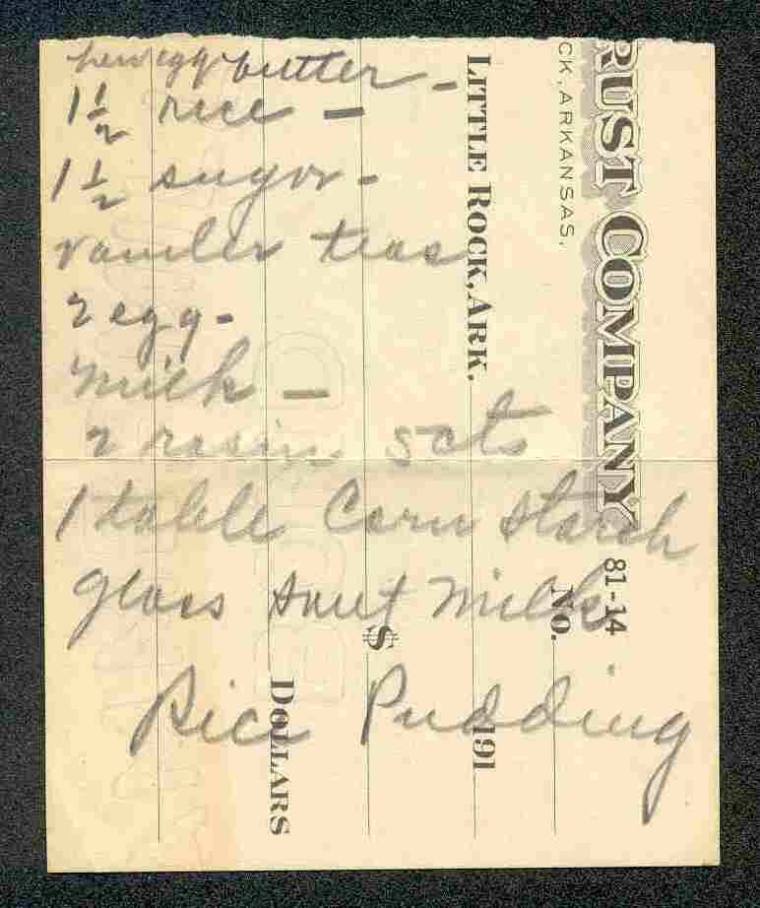 egg butter -
1½ rice -
1½ sugar -
vaniler teas
2 egg -
milk -
2 rasin 5cts
1 table Corn starch
glass sweet milk
Rice Pudding
RUST COMPANY
CK, ARKANSAS.
81-14
No.
LITTLE ROCK, ARK.
191
$
DOLLARS